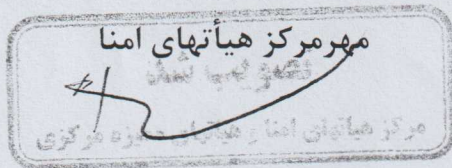 مهرمرکز هیأتهای امنا
تصویب شد
مرکز هیأتهای امنا و هیأتهای حوزه مرکزی